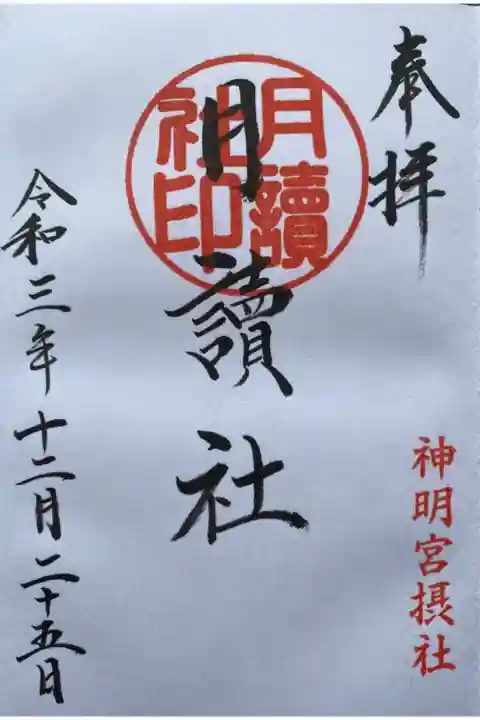 奉拝
神明宮摂社
月讀
社印
月讀社
令和三年十二月二十五日